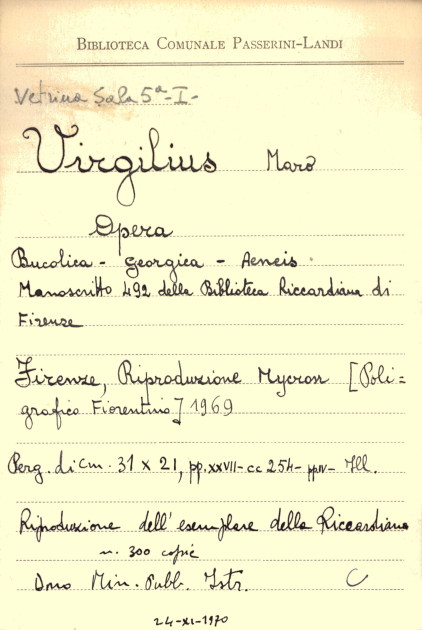 BIBLIOTECA COMUNALE PASSERINI-LANDI
Vetrina Sala 5ª-I-
Virgilius Maro
Opera
Bucolica - Georgica - Aeneis
Manoscritto 492 della Biblioteca Riccardiana di
Firenze
Firenze, Riproduzione Mycron [Poli=
grafico Fiorentino] 1969
Perg. di cm. 31 x 21, pp. XXVII - cc 254 - pp IV - Ill.
Riproduzione dell'esemplare della Riccardiana
n. 300 copie
Dono Min. Pubbl. Istr. C
24-XI-1970